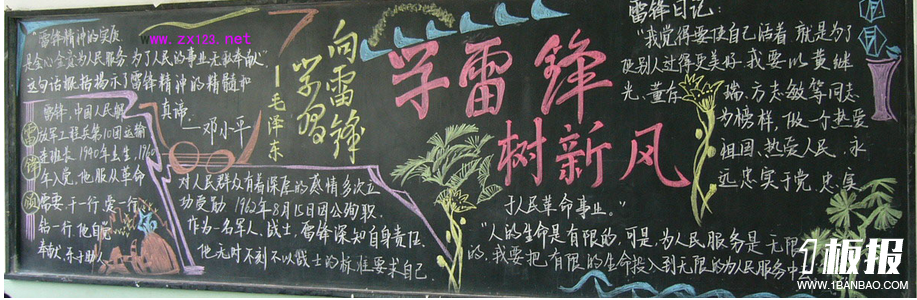 www.zx123.net
"雷锋精神的实质
是全心全意为人民服务为了人民的事业无私奉献"
这句话概括揭示了雷锋精神的精髓和
真谛。
——邓小平
雷锋颂
雷锋,中国人民解
放军工程兵第10团运输
连班长1940年去生,1960
年入党。他服从革命
需要,干一行,爱一行
钻一行,他自觉
奉献,乐于助人
向雷锋
学习
—毛泽东
对人民群众有着深厚的感情多次立
功受勋 1962年8月15日因公殉职.
作为一名军人、战士,雷锋深知自身责任.
他无时不刻不以战士的标准要求自己.
学雷锋
树新风
雷锋日记:
"我觉得要使自己活着 就是为了
使别人过得更美好.我要以黄继
光、董存瑞、方志敏等同志
为榜样,做一个热爱
祖国、热爱人民、永
远忠实于党,忠实
于人民革命事业。"
"人的生命是有限的,可是,为人民服务是无限
的,我要把有限的生命投入到无限的为人民服务中去
1板报
WWW.1BANBAO.COM